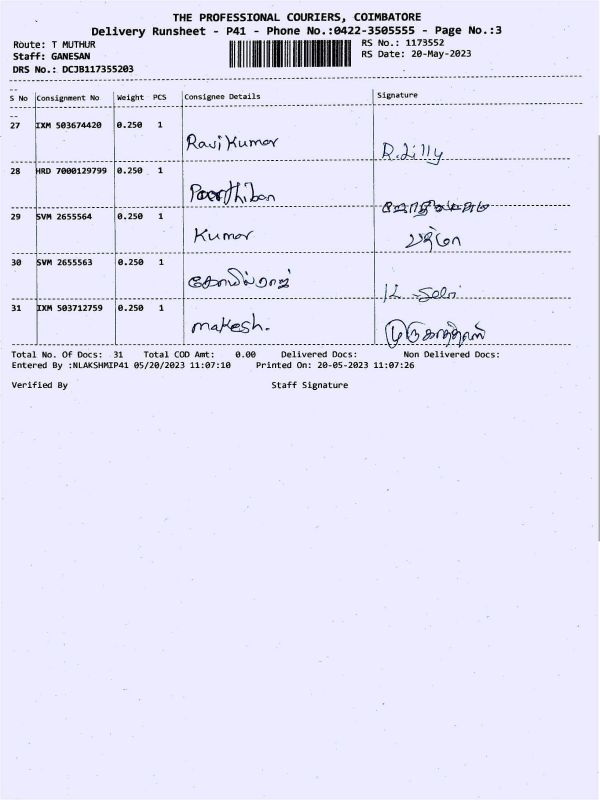 THE PROFESSIONAL COURIERS, COIMBATORE
Delivery Runsheet - P41 - Phone No.:0422-3505555 - Page No.:3
Route: T MUTHUR
RS No.: 1173552
Staff: GANESAN
RS Date: 20-May-2023
DRS No.: DCJB117355203
S No Consignment No Weight PCS Consignee Details Signature
27 IXM 503674420 0.250 1
Ravi Kumar R.Lilly
28 HRD 7000129799 0.250 1
Parthiban
29 SVM 2655564 0.250 1
Kumar
30 SVM 2655563 0.250 1
கோவில்ராஜ் K. Selvi
31 IXM 503712759 0.250 1
makesh.
Total No. Of Docs: 31 Total COD Amt: 0.00 Delivered Docs: Non Delivered Docs:
Entered By :NLAKSHMIP41 05/20/2023 11:07:10 Printed On: 20-05-2023 11:07:26
Verified By Staff Signature